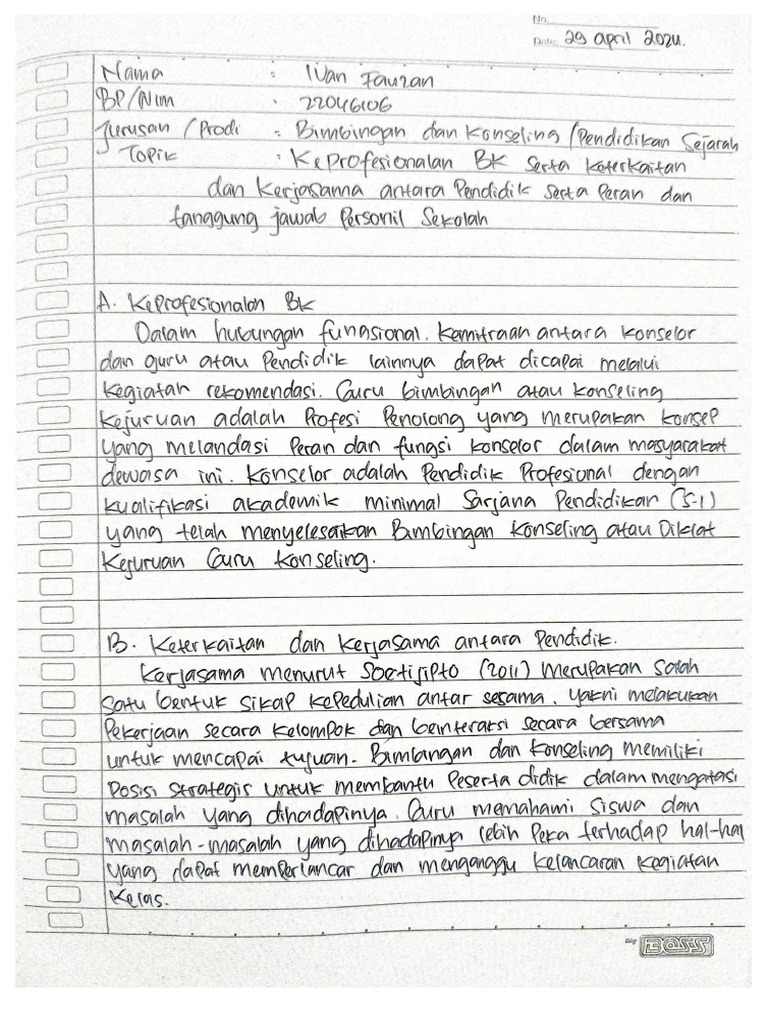 No.
Date: 29 April 2024.
Nama : Ivan Fauzan
BP/Nim : 22046106
Jurusan / Prodi : Bimbingan dan Konseling / Pendidikan Sejarah
Topik : Keprofesionalan BK serta keterkaitan
dan Kerjasama antara Pendidik serta Peran dan
tanggung jawab Personil Sekolah
A. Keprofesionalan BK
Dalam hubungan fungsional. Kemitraan antara konselor
dan guru atau Pendidik lainnya dapat dicapai melalui
kegiatan rekomendasi. Guru bimbingan atau konseling
kejuruan adalah Profesi Penolong yang merupakan konsep
yang melandasi Peran dan fungsi konselor dalam masyarakat
dewasa ini. Konselor adalah Pendidik Profesional dengan
kualifikasi akademik minimal Sarjana Pendidikan (S-1)
yang telah menyelesaikan Bimbingan Konseling atau Diklat
Kejuruan Guru Konseling.
B. Keterkaitan dan Kerjasama antara Pendidik.
Kerjasama menurut Soetjipto (2011) Merupakan Salah
satu bentuk sikap kepedulian antar sesama, yakni melakukan
Pekerjaan secara kelompok dan beinteraksi secara bersama
untuk mencapai tujuan. Bimbangan dan Konseling memiliki
Posisi strategis untuk membantu Peserta didik dalam mengatasi
masalah yang dihadapinya. Guru memahami siswa dan
masalah-masalah yang dihadapinya lebih Peka terhadap hal-hal
yang dapat memperlancar dan menganggu kelancaran kegiatan
Kelas.
My BOSS